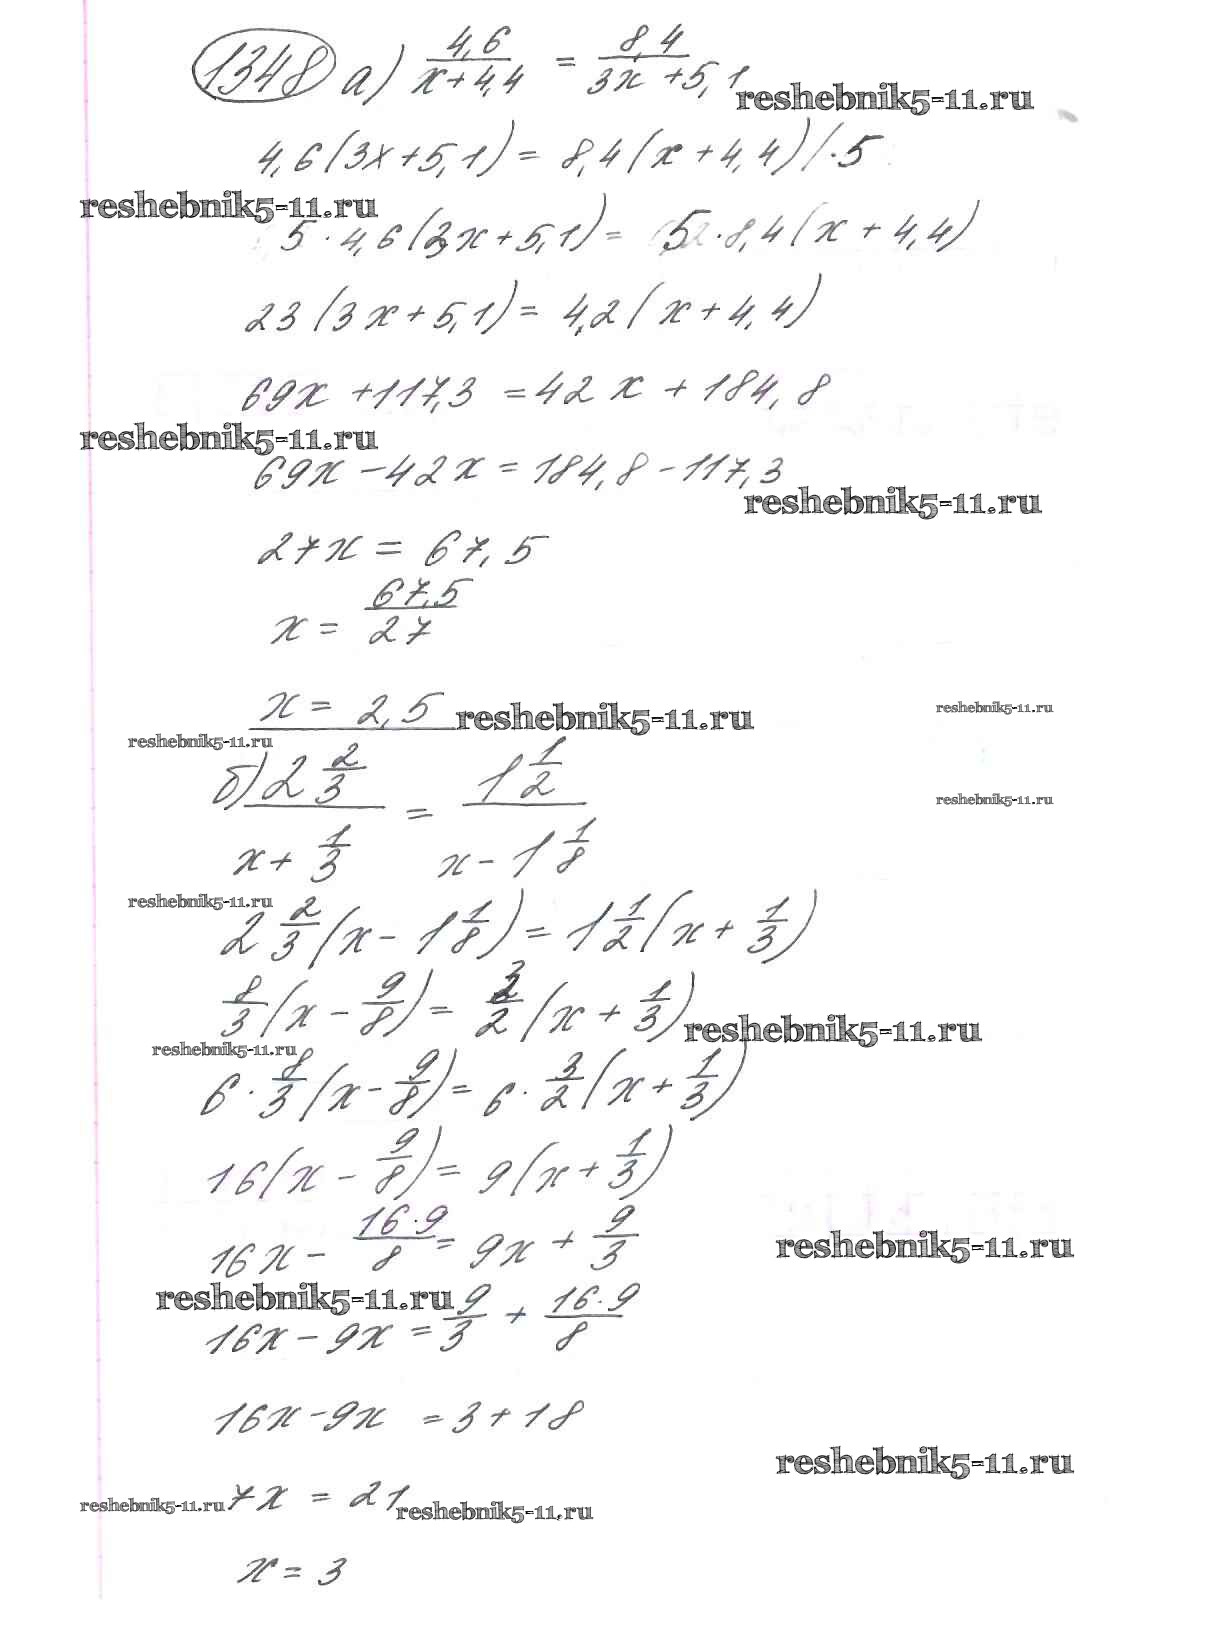 1348 а) 4,6/(x+4,4) = 8,4/(3x+5,1)
reshebnik5-11.ru
4,6(3x+5,1) = 8,4(x+4,4) /·5
reshebnik5-11.ru
5·4,6(3x+5,1) = 5·8,4(x+4,4)
23(3x+5,1) = 4,2(x+4,4)
69x+117,3 = 42x+184,8
reshebnik5-11.ru
69x-42x = 184,8-117,3
reshebnik5-11.ru
27x = 67,5
x = 67,5/27
x = 2,5
reshebnik5-11.ru
reshebnik5-11.ru
reshebnik5-11.ru
б) 2 2/3 / (x + 1/3) = 1 1/2 / (x - 1 1/8)
reshebnik5-11.ru
reshebnik5-11.ru
2 2/3 (x - 1 1/8) = 1 1/2 (x + 1/3)
8/3 (x - 9/8) = 3/2 (x + 1/3)
reshebnik5-11.ru
reshebnik5-11.ru
6 · 8/3 (x - 9/8) = 6 · 3/2 (x + 1/3)
16(x - 9/8) = 9(x + 1/3)
16x - 16·9/8 = 9x + 9/3
reshebnik5-11.ru
reshebnik5-11.ru
16x - 9x = 9/3 + 16·9/8
16x-9x = 3+18
reshebnik5-11.ru
7x = 21
reshebnik5-11.ru
reshebnik5-11.ru
x = 3